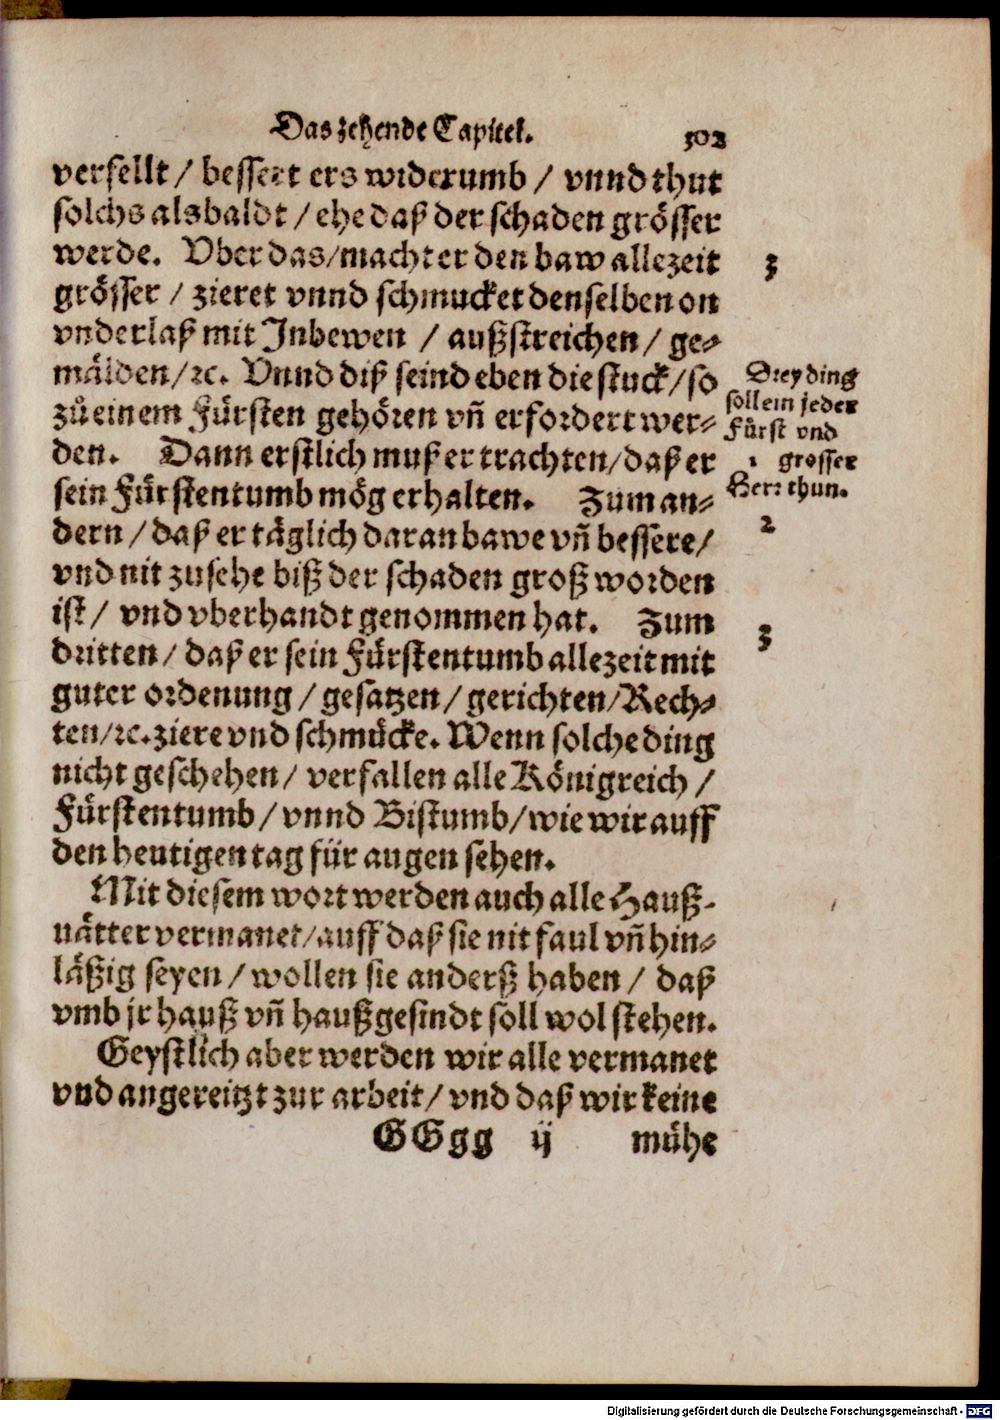 Das zehende Capitel. 302
verfellt / bessert ers widerumb / vnnd thut
solchs alsbaldt / ehe daß der schaden grösser
werde. Vber das / macht er den baw allezeit
3
grösser / zieret vnnd schmucket denselben on
vnderlaß mit Inbewen / außstreichen / ge-
mälden / ꝛc. Vnnd diß seind eben die stuck / so
zů einem Fürsten gehören vñ erfordert wer-
den. Dann erstlich muß er trachten / daß er
sein Fürstentumb mög erhalten. Zum an-
dern / daß er täglich daran bawe vñ bessere /
vnd nit zusehe biß der schaden groß worden
ist / vnd vberhandt genommen hat. Zum
dritten / daß er sein Fürstentumb allezeit mit
guter ordenung / gesatzen / gerichten / Rech-
ten / ꝛc. ziere vnd schmücke. Wenn solche ding
nicht geschehen / verfallen alle Königreich /
Fürstentumb / vnnd Bistumb / wie wir auff
den heutigen tag für augen sehen.
Drey ding
soll ein jeder
Fürst vnd
1 grosser
Herr thun.
2
3
Mit diesem wort werden auch alle Hauß-
uätter vermanet / auff daß sie nit faul vñ hin-
läßig seyen / wollen sie anderß haben / daß
vmb jr hauß vñ haußgesindt soll wol stehen.
Geystlich aber werden wir alle vermanet
vnd angereitzt zur arbeit / vnd daß wir keine
GGgg ij mühe
Digitalisierung gefördert durch die Deutsche Forschungsgemeinschaft - DFG